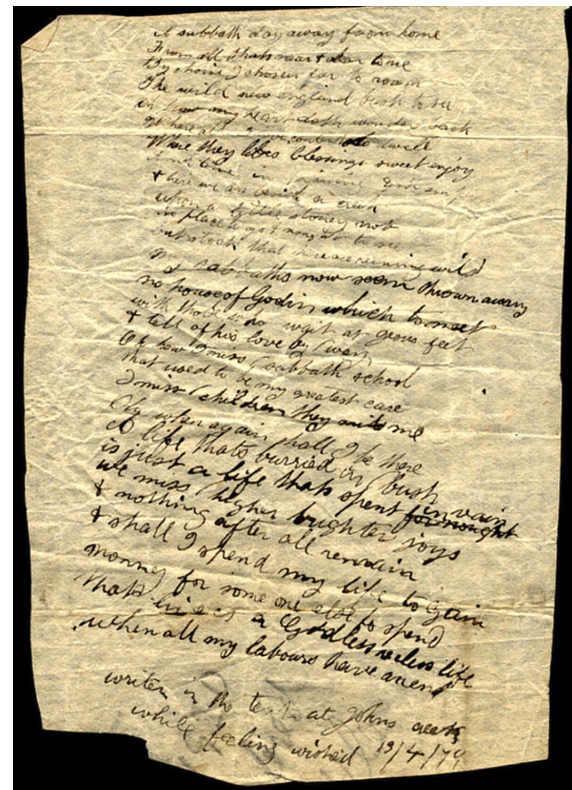 A sabbath day away from home
From all thats near & dear to me
By choise I chosen far to roam
The wild new england bush to see
my heart doth wonder back
dwell
Where they lifes blessings sweet enjoy
And live in
& here we are beside a creek
when a little stoney
no place to go & nought to see
but stock that here are running wild
my sabbaths now seem thrown away
no house of God in which to meet
with those who wait at feet
& tell of his love by way
Oh how I miss sabbath school
that used to be my greatest care
I miss children they miss me
Oh when again shall I be there
A life thats burried in bush
is just a life thats spent in vain for nought
we miss higher brighter joys
& nothing after all remain
& shall I spend my life to gain
money for some one else to spend
thats lived a Godless useless life
when all my labours have an end
writen in the tent at Johns creek
while feeling 13/4/79